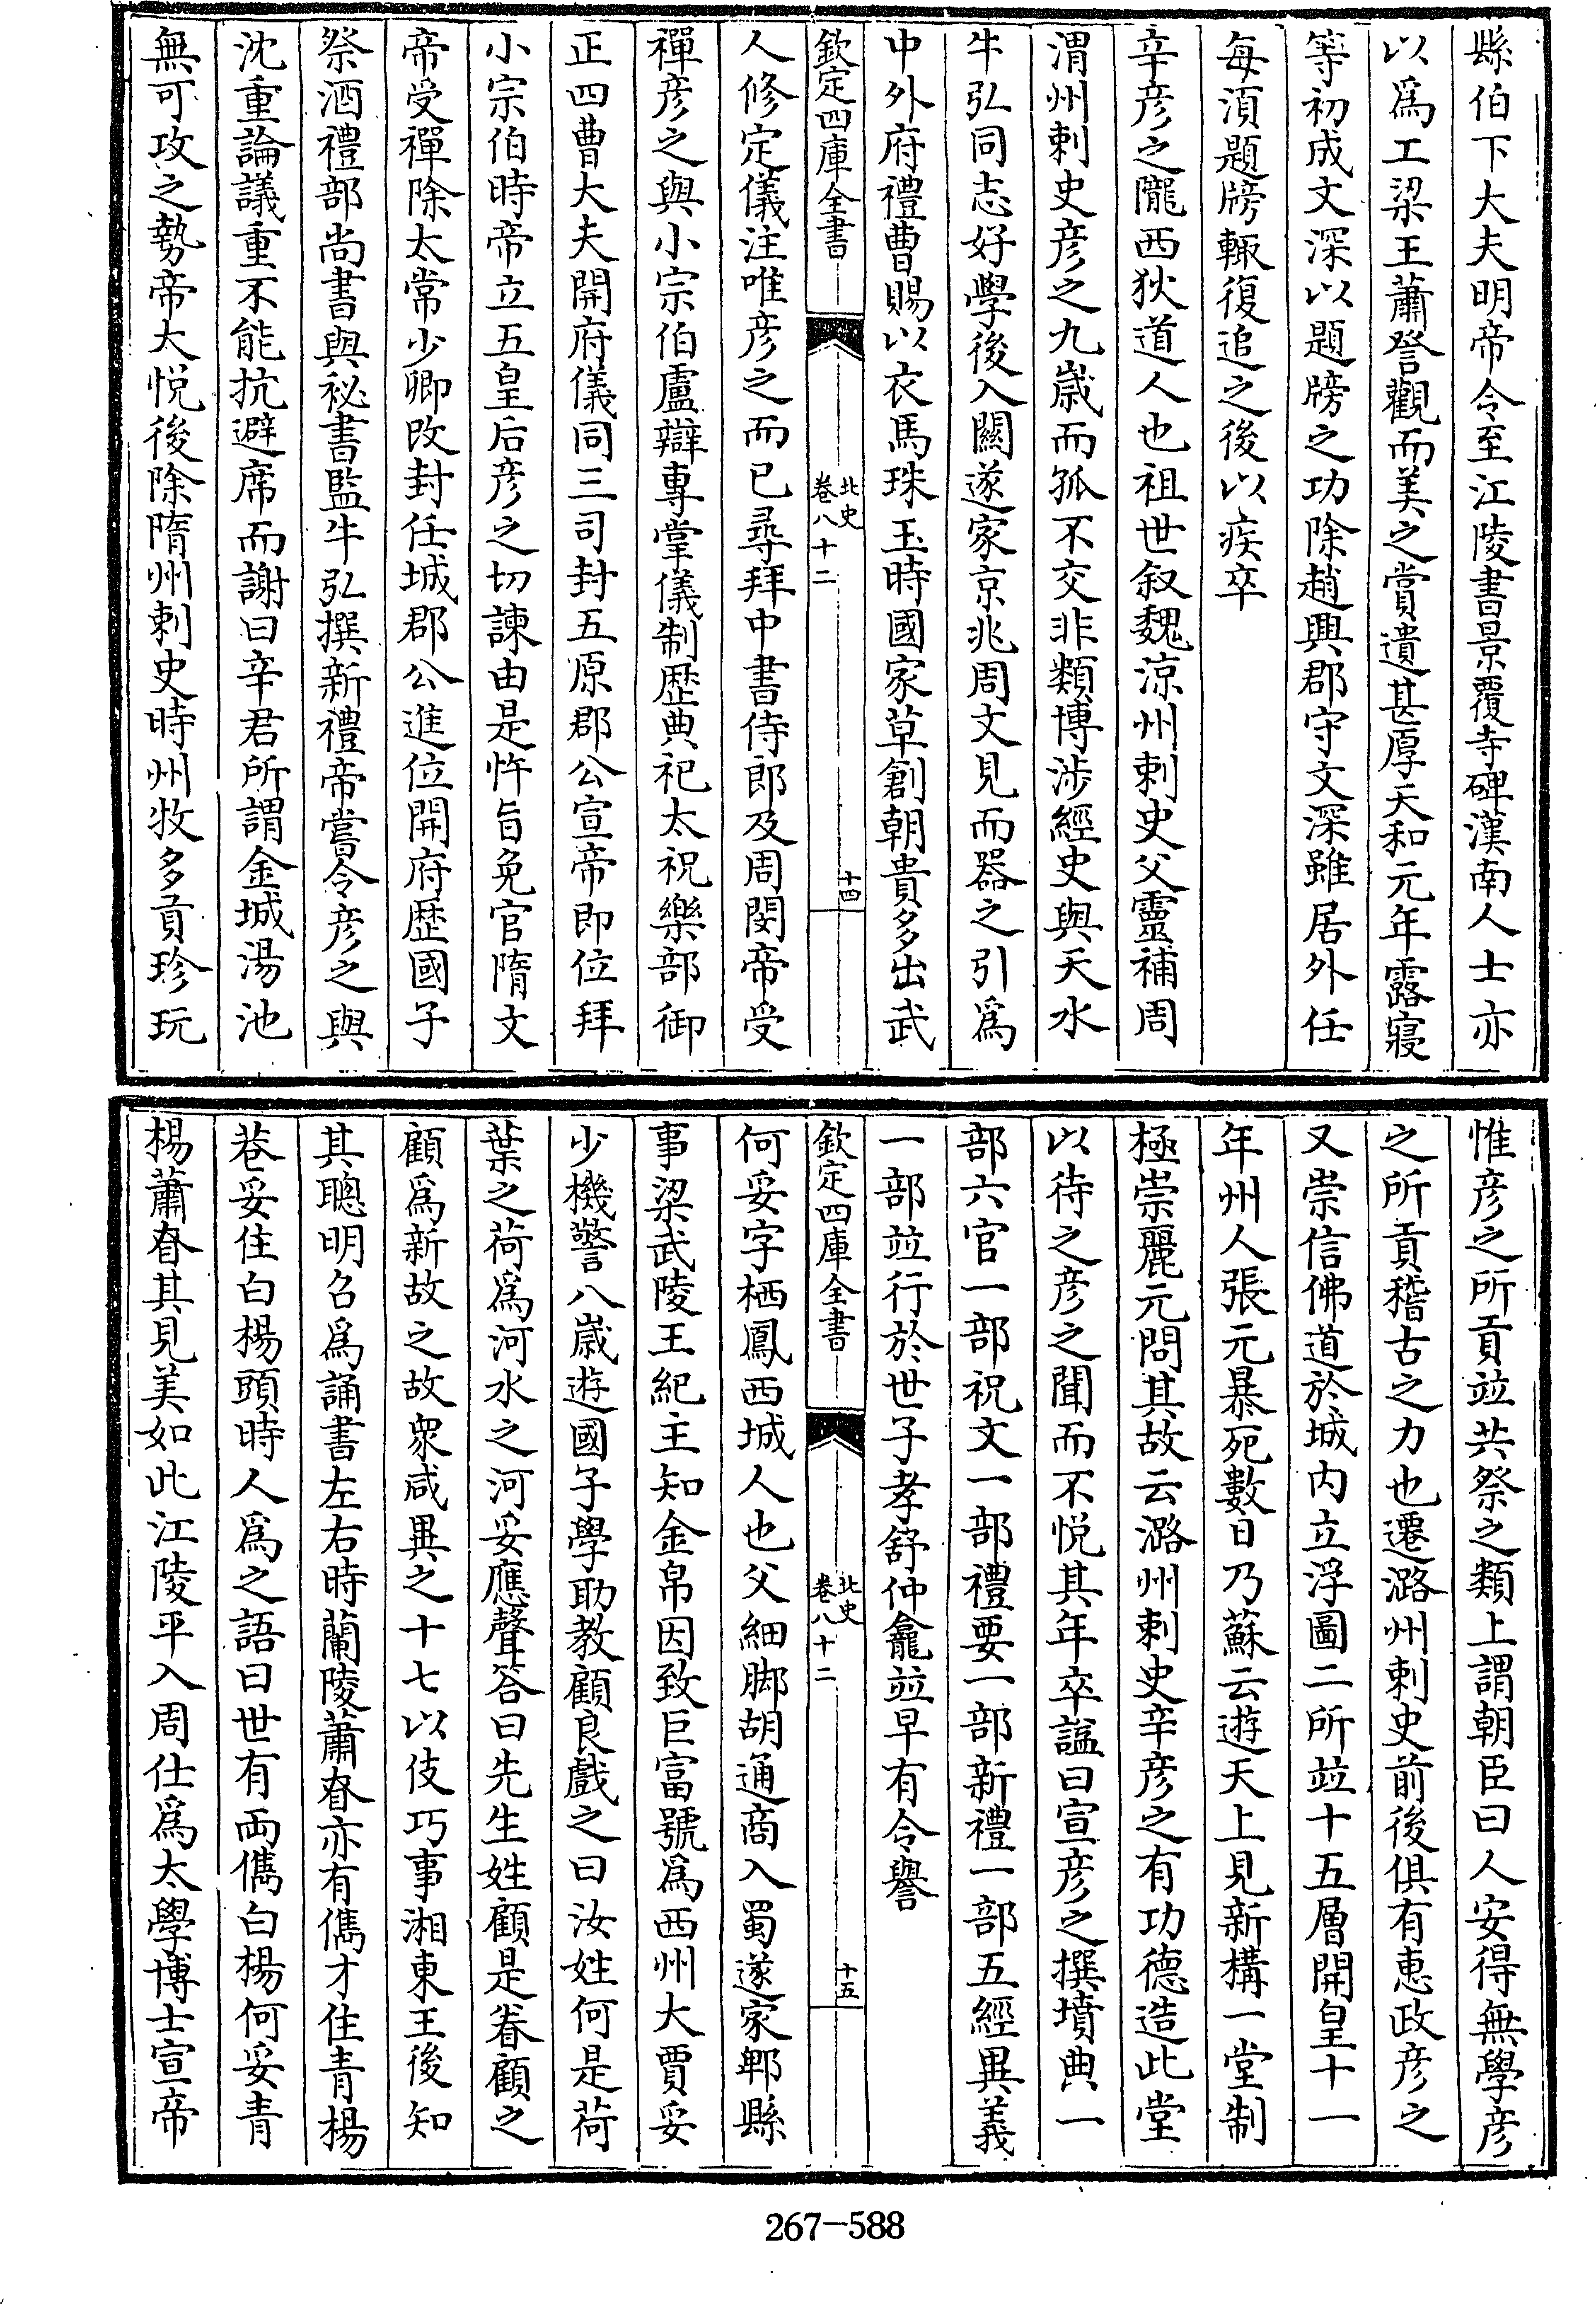 縣伯下大夫明帝令至江陵書景覆寺碑漢南人士亦
以爲工梁王蕭詧觀而美之賞遺甚厚天和元年露寢
等初成文深以題牓之功除趙興郡守文深雖居外任
每湏題牓輙復追之後以疾卒
辛彦之隴西狄道人也祖世叙魏涼州刺史父靈補周
渭州刺史彦之九嵗而孤不交非類博涉經史與天水
牛弘同志好學後入關遂家京兆周文見而器之引爲
中外府禮曹賜以衣馬珠玉時國家草創朝貴多出武
欽定四庫全書
北史
卷八十二
十四
人修定儀注唯彦之而已尋拜中書侍郎及周閔帝受
禪彦之與小宗伯盧辯專掌儀制歴典祀太祝樂部御
正四曹大夫開府儀同三司封五原郡公宣帝即位拜
小宗伯時帝立五皇后彦之切諫由是忤旨免官隋文
帝受禪除太常少卿改封任城郡公進位開府歴國子
祭酒禮部尚書與祕書監牛弘撰新禮帝嘗令彦之與
沈重論議重不能抗避席而謝曰辛君所謂金城湯池
無可攻之勢帝大悅後除隋州刺史時州牧多貢珍玩
惟彦之所貢竝共祭之類上謂朝臣曰人安得無學彦
之所貢稽古之力也遷潞州刺史前後俱有惠政彦之
又崇信佛道於城内立浮圖二所竝十五層開皇十一
年州人張元暴死數日乃蘇云遊天上見新構一堂制
極崇麗元問其故云潞州刺史辛彦之有功德造此堂
以待之彦之聞而不悅其年卒諡曰宣彦之撰墳典一
部六官一部祝文一部禮要一部新禮一部五經異義
一部竝行於世子孝舒仲龕竝早有令譽
欽定四庫全書
北史
卷八十二
十五
何妥字栖鳳西城人也父細脚胡通商入蜀遂家郫縣
事梁武陵王紀主知金帛因致巨富號爲西州大賈妥
少機警八嵗遊國子學助教顧良戲之曰汝姓何是荷
葉之荷爲河水之河妥應聲答曰先生姓顧是眷顧之
顧爲新故之故衆咸異之十七以伎巧事湘東王後知
其聰明召爲誦書左右時蘭陵蕭眘亦有儁才住青楊
巷妥住白楊頭時人爲之語曰世有兩儁白楊何妥青
楊蕭眘其見美如此江陵平入周仕爲太學博士宣帝
267-588